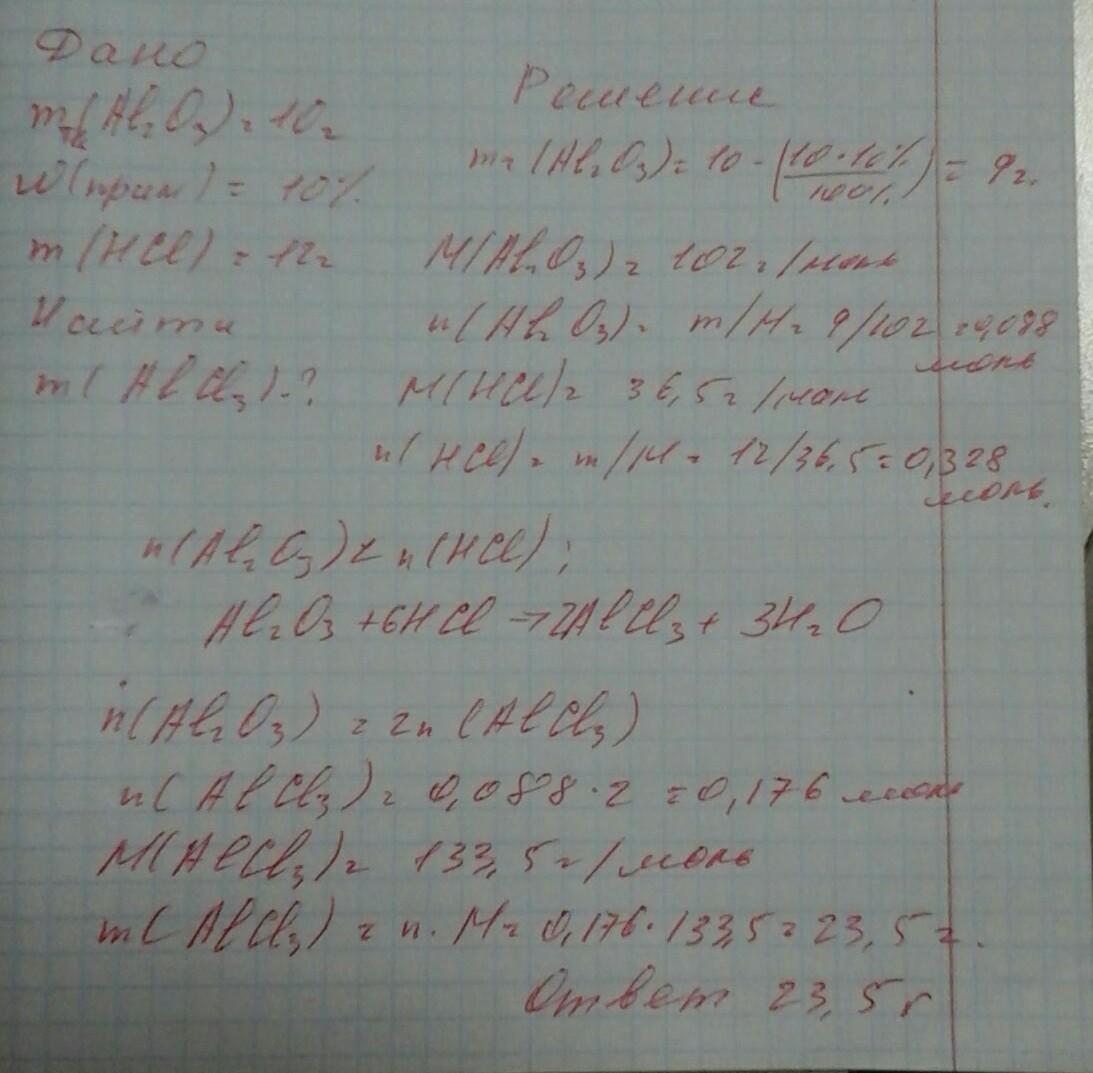 Дано
mтх(Al₂O₃) = 10г
W(прим) = 10%
m(HCl) = 12г
Найти
m(AlCl₃) - ?
Решение
m₂(Al₂O₃) = 10 - (10·10%/100%) = 9г.
M(Al₂O₃) = 102 г/моль
n(Al₂O₃) = m/M = 9/102 = 0,088 моль
M(HCl) = 36,5г/моль
n(HCl) = m/M = 12/36,5 = 0,328 моль.
n(Al₂O₃) < n(HCl);
Al₂O₃ + 6HCl → 2AlCl₃ + 3H₂O
n(Al₂O₃) = 2n(AlCl₃)
n(AlCl₃) = 0,088·2 = 0,176 моль
M(AlCl₃) = 133,5г/моль
m(AlCl₃) = n·M = 0,176·133,5 = 23,5г.
Ответ 23,5г